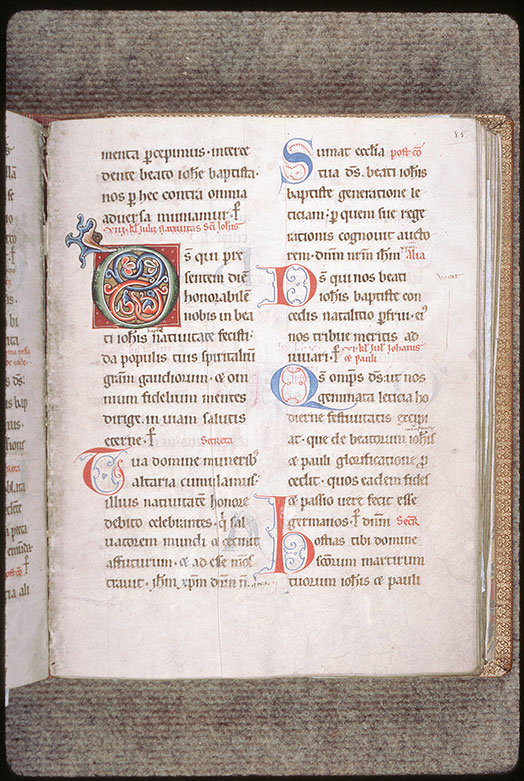 85
menta percepimus · interce
dente beato iohe baptista ·
nos per hec contra omnia
aduersa muniamur · P
viii · kl julii natiuitas Sci Johis
Ds qui pre
sentem diē
honorabilē
nobis in bea
ti iohis natiuitate fecisti ·
da populis tuis spiritaliū
gram gaudiorum · et om
nium fidelium mentes
dirige in uiam salutis
eterne · P Secreta
Tua domine munerib;
altaria cumulamus ·
illius natiuitatē honore
debito celebrantes · qi sal
uatorem mundi et cecinit
affuturum · et ad esse mōs
trauit · ihm xpm dnm n.
Sumat ecclia post cō
tua ds · beati iohis
baptiste generatione le
ticiam · per quem sue rege
rationis cognouit aucto
rem · dnm nrm ihm Alia
Ds qui nos beati
iohis baptiste con
cedis natalitio perfrui · ei9
nos tribue meritis ad
iuuari · P vi · kl jul Johanis
et pauli
Qs omps ds · ut nos
geminata leticia ho
dierne festiuitatis excipi
at · que de beatorum iohis
et pauli glorificatione p
cedit · quos eadem fides
et passio uere fecit esse
germanos · P dnm Secr
Hostias tibi domine
scorum martirum
tuorum iohis et pauli